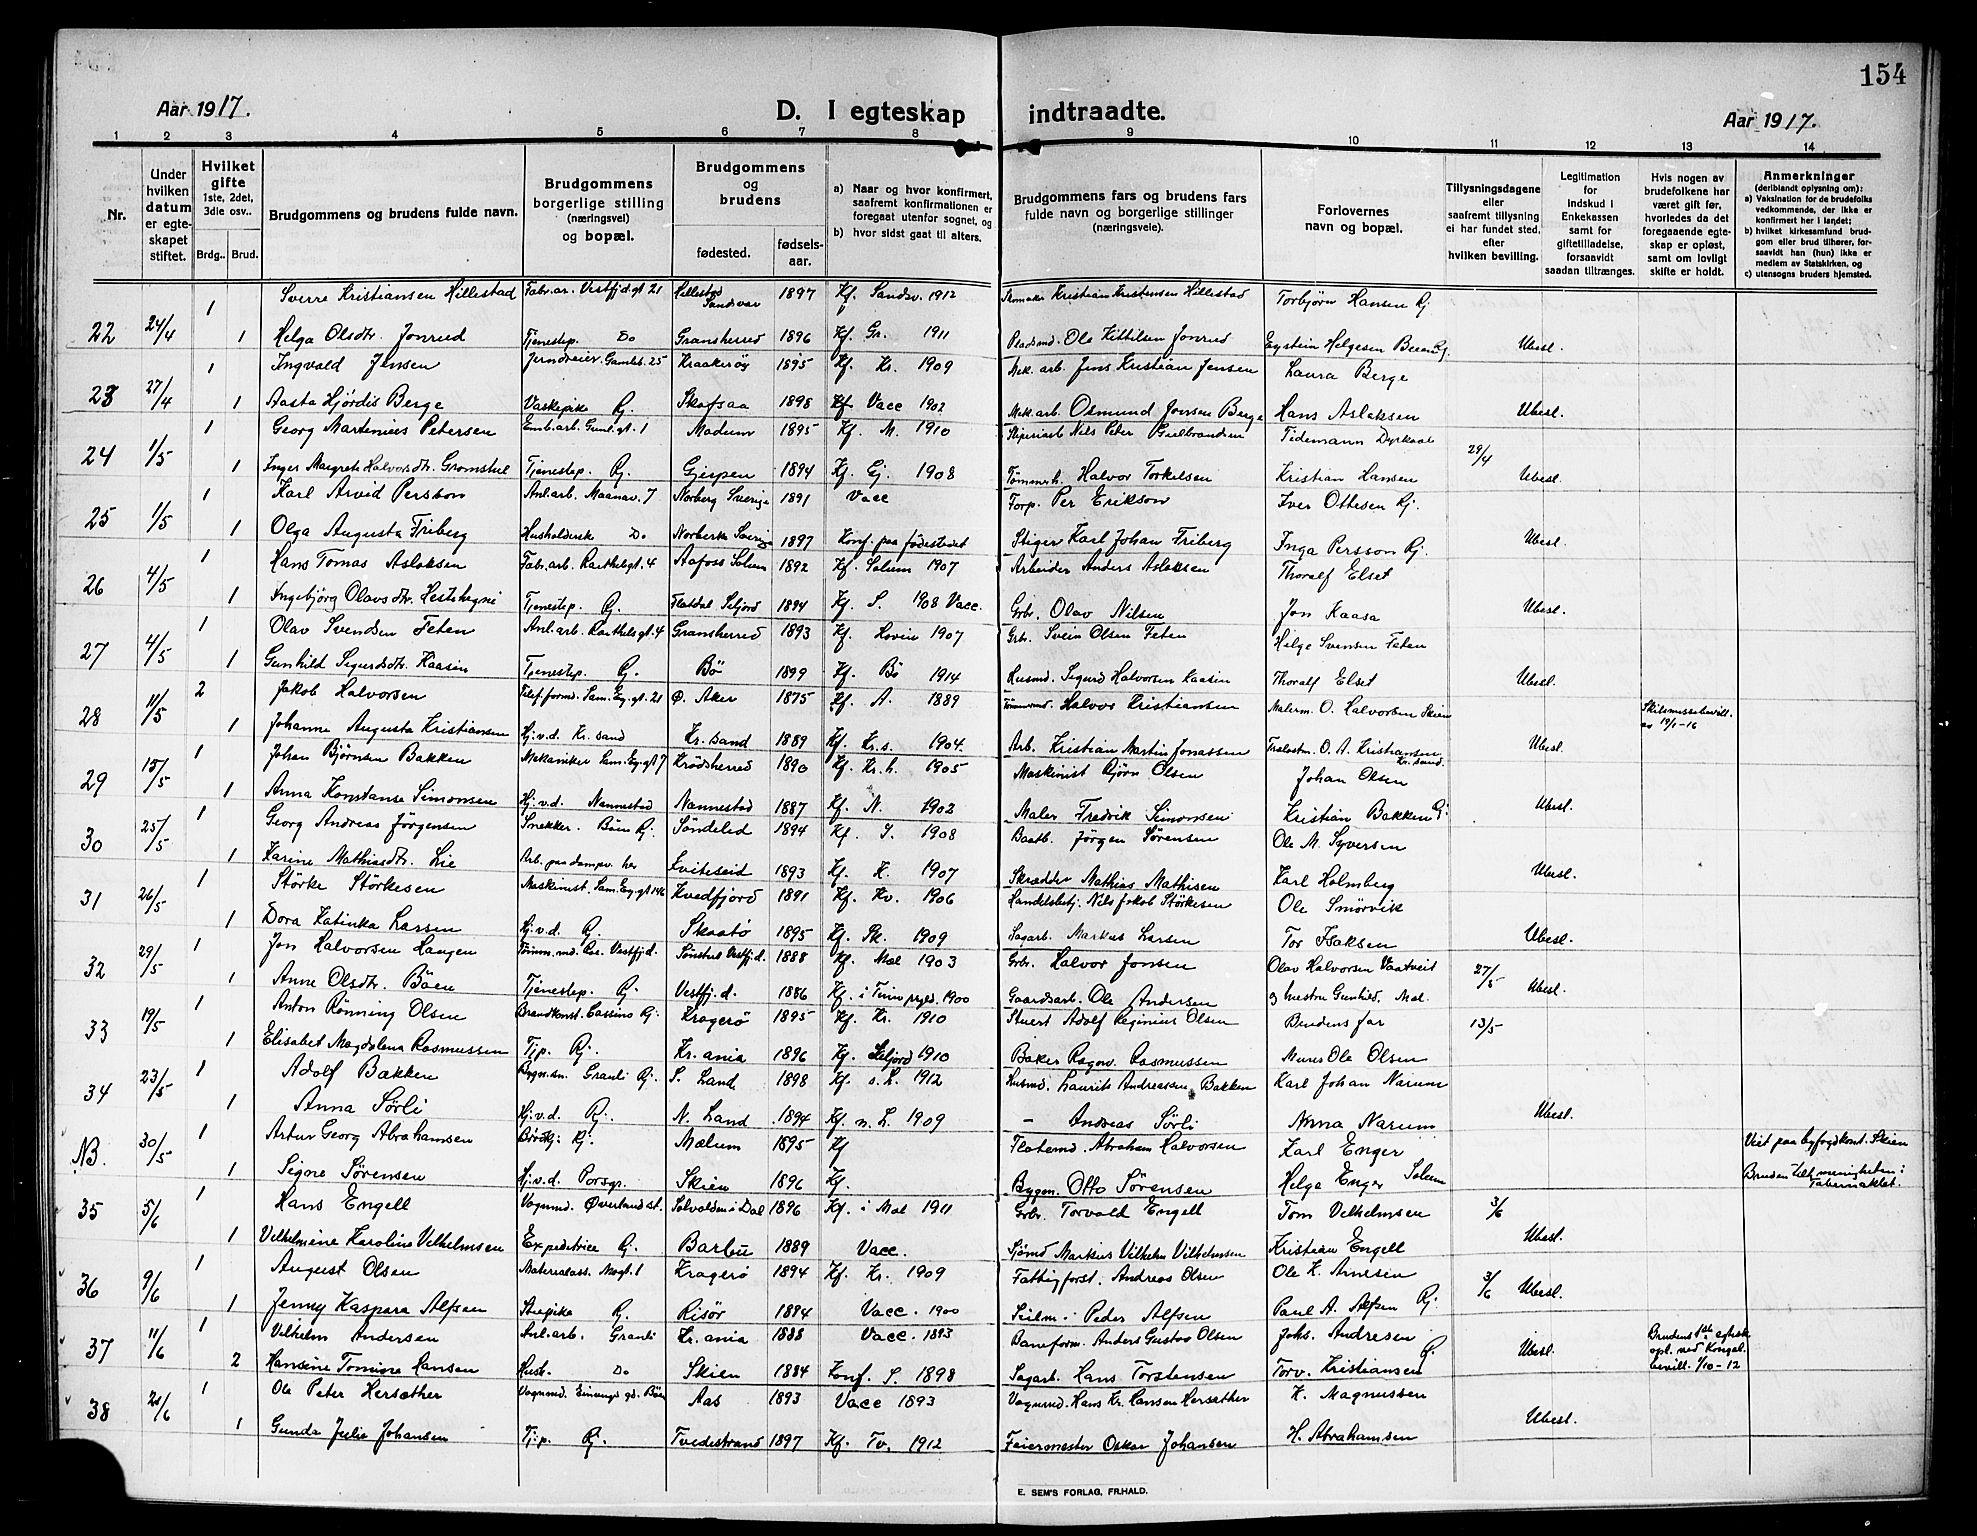 154
Aar 1917.
D. I egteskap indtraadte.
Aar 1917.
1 2 3 4 5 6 7 8 9 10 11 12 13 14
Nr.
Under hvilken datum er egteskapet stiftet.
Hvilket gifte 1ste, 2det, 3die osv..
Brdg.. Brud.
Brudgommens og brudens fulde navn.
Brudgommens borgerlige stilling (næringsvei) og bopæl.
Brudgommens og brudens
fødested. fødsels-aar.
a) Naar og hvor konfirmert, saafremt konfirmationen er foregaat utenfor sognet, og
b) hvor sidst gaat til alters.
Brudgommens fars og brudens fars fulde navn og borgerlige stillinger (næringsveie).
Forlovernes navn og bopæl.
Tillysningsdagene eller saafremt tillysning ei har fundet sted, efter hvilken bevilling.
Legitimation for indskud i Enkekassen samt for giftetilladelse, forsaavidt saadan tiltrænges.
Hvis nogen av brudefolkene har været gift før, hvorledes da det foregaaende egteskap er opløst, samt om lovligt skifte er holdt.
Anmerkninger (deriblandt oplysning om): a) Vaksination for de brudefolks vedkommende, der ikke er konfirmert her i landet; b) hvilket kirkesamfund brudgom eller brud tilhører, forsaavidt han (hun) ikke er medlem av Statskirken, og c) utensogns bruders hjemsted.
1 Sverre Kristiansen Hillestad Fabr.ar. Vestfjd.gt 21 Hillestad Sandsvær 1897 Kf. Sandsv. 1912 Kristian Kristensen Hillestad Torbjørn Hansen Rj
22 24/4 1 Helga Olsdtr. Jonrud Tjenestep. Do Gransherred 1896 Kf. Gr. 1911 Pladsmd. Ola Kittilsen Jonrud Eystein Helgesen Rj. Ubesl.
1 Ingvald Jensen Jerndreier. Gamleb. 25 Kraakerøy 1895 Kf. Kr. 1909 Mek. arb. Jens Kristian Jensen Laura Berge
23 27/4 1 Aasta Hjørdis Berge Vaskepike Rj. Skafsaa 1898 Vacc 1902 Mek.arb. Osmund Jonsen Berge Hans Aslaksen Ubesl.
1 Georg Martinius Petersen Emb.arb. Gaml.gt. 1 Modum 1895 Kf. M. 1910 Nils Peter Gulbrandsen Tidemann Dyrkaas
24 1/5 1 Inger Margrete Halvorsdtr. Gromstul Tjenestep. Rj. Gjerpen 1894 Kf. Gj. 1908 Tømmerh. Halvor Torkelsen Kristian Hansen 29/4 Ubesl.
1 Karl Arvid Persson Anl.arb. Maanav. 7 Norberg Sverige 1891 Vacc Forp. Per Erikson Iver Ottesen Rj.
25 1/5 1 Olga Augusta Friberg Husholderske Do Norberk Sverige 1897 Konf. paa fødestedet Stiger Karl Johan Friberg Inga Persson Rj. Ubesl.
1 Hans Tomas Aslaksen Fab.arb. Rasthelsgt. 4 Aafoss Solum 1892 Kf. Solum 1907 Arbeider Anders Aslaksen Thoralf Elset
26 4/5 1 Ingebjørg Olavsdtr. Hestehegni Tjenestep. Rj. Flatdal Seljord 1894 Kf. S. 1908 Vacc. Grbr. Olav Nilsen Jon Kaasa Ubesl.
1 Olav Svendsen Feten Anl.arb. Rasthelsgt. 4 Gransherred 1893 Kf. Hovin 1907 Grb. Svein Olsen Feten Helge Svensen Feten
27 4/5 1 Gunhild Sigurdsdtr. Kaasin Tjenestep. Rj. Bø 1899 Kf. Bø 1914 Husmd. Sigurd Halvorsen Kaasin Thoralf Elset Ubesl.
2 Jakob Halvorsen Telef.formd. Sam.Eg.gt. 21 Ø. Aker 1875 Kf. A. 1889 Halvor Kristiansen Malerm. O. Halvorsen Skien
28 11/5 1 Johanne Augusta Kristiansen Hj.v.d. Kr.sand Kr.sand 1889 Kf. Kr.s. 1904. Arb. Kristian Martin Jonassen O. A. Kristiansen Kr.sand. Ubesl. Skilsmissebevill. av 19/1-16
1 Johan Bjørnsen Bakken Mekaniker Sam.Eg.gt 7 Krødsherred 1890 Kf. Kr.h. 1905 Maskinist Bjørn Olsen Johan Olsen
29 15/5 1 Anna Konstanse Simonsen Hj.v.d. Nannestad Nannestad 1887 Kf. N. 1902 Maler Fredrik Simonsen Kristian Bakken Rj Ubesl.
1 Georg Andreas Jørgensen Snekker. Bøen Rj. Søndeled 1894 Kf. S. 1908 Baatb. Jørgen Sørensen Ole M. Syversen
30 25/5 1 Karine Mathiasdtr. Lie Arb. paa dampv. her Kviteseid 1893 Kf. K. 1907 Skrædder Mathias Mathisen Karl Holmberg Ubesl.
1 Størke Størkesen Maskinist. Sam.Eg.gt 146 Kvedfjord 1891 Kf. Kv. 1906 Handelsbetj. Nils Jakob Størkesen Ole Smørvik
31 26/5 1 Dora Katinka Larsen Hj.v.d. Rj. Skaatø 1895 Kf. Sk. 1909 Sagarb. Markus Larsen Tor Isaksen Ubesl.
1 Jon Halvorsen Haugen Tømm.md. Vestfj.d. Vestfj.d. 1888 Kf. Mæl 1903 Grbr. Halvor Jonsen Olav Halvorsen Vaatveit
32 29/5 1 Anne Olsdtr. Bøen Tjenestep. Rj. Vestfj.d. 1886 Kf. i Tinn 1900 Gaardsarb. Ole Andersen og hustru Gunhild. Mæl. 27/5 Ubesl.
1 Anton Rønning Olsen Brandkonst. Cassino Rj. Kragerø 1895 Kf. Kr. 1910 Stuert Adolf Reginius Olsen Brudens far
33 19/5 1 Elisabet Magdalena Rasmussen Tjp. Rj. Kr.ania 1896 Kf. Seljord 1910 Baker Ragnv. Rasmussen Murer Ole Olsen 13/5
1 Adolf Bakken Bygn.sn. Granli Rj. S. Land 1898 Kf. s.L. 1912 Husmd. Laurits Andreassen Bakken Karl Johan Narum
34 23/5 1 Anna Sørli Hj.v.d. Rj. N. Land 1894 Kf. n. L. 1909 — Andreas Sørli Anna Narum Ubesl.
1 Artur Georg Abrahamsen Rj. Mælum 1895 Kf Flotemd. Abraham Halvorsen Karl Enger Viet paa byfogdkont. Skien
NB. 30/5 1 Signe Sørensen Hj.v.d. Porsgr. Skien 1896 Kf. Bygm. Otto Sørensen Helga Enger Solum Bruden tilh. menigheten i Tabernaklet.
1 Hans Engell Vognmd. Øverland st. Solvolden i Dal 1896 Kf. i Mæl 1911 Grbr. Torvald Engell Tom Velhelmsen
35 5/6 1 Velhelmine Karoline Velhelmsen Expeditrice Rj. Barbu 1889 Vacc. Sjømd Markus Vilhelm Vilhelmsen Kristian Engell 3/6 Ubesl.
1 August Olsen Materialass. Mogt. 1 Kragerø 1894 Kf. Kr. 1909 Fattigforst. Andreas Olsen Ole K. Arnesen
36 9/6 1 Jenny Kaspara Alfsen Stuepike Rj. Risør 1894 Vacc. 1900 Seilm. Peder Alfsen Paul A. Alfsen Rj. 3/6 Ubesl.
1 Vilhelm Andersen Anl.arb. Granli Kr.ania 1888 Vacc. 1893 Baneform. Anders Gustav Olsen Johs. Andresen
37 11/6 2 Hansine Tomine Hansen Hust. Do Skien 1884 Konf. S. 1898 Sagarb. Hans Torstensen Torv. Kristiansen Rj. Ubesl. Brudens 1ste egtesk. opl. ved Kongel. bevill. 1/10-12
1 Ole Peter Hersæther Vognmd. Aas 1893 Vacc 1893 Vognmd. Hans Kr. Hansen Hersæther K. Magnussen
38 21/6 1 Gunda Julie Johansen Tj.p. Rj. Tvedestrand 1897 Kf. Tv. 1912 Feiermester Oskar Johansen H. Abrahamsen Ubesl.
E. SEM'S FORLAG, FR.HALD.